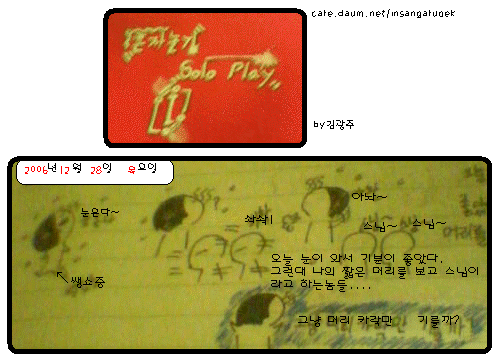 cafe.daum.net/insangatunek
혼자놀기
Solo Play..
by김광주
2006년12월 28일 목요일
눈온다~
쌩쇼중
쇡쇡!
아놔~
스님~ 스님~
오늘 눈이 와서 기분이 좋았다.
그런대 나의 짧은 머리를 보고 스님이
라고 하는놈들....
그냥 머리 카락만 기를까?